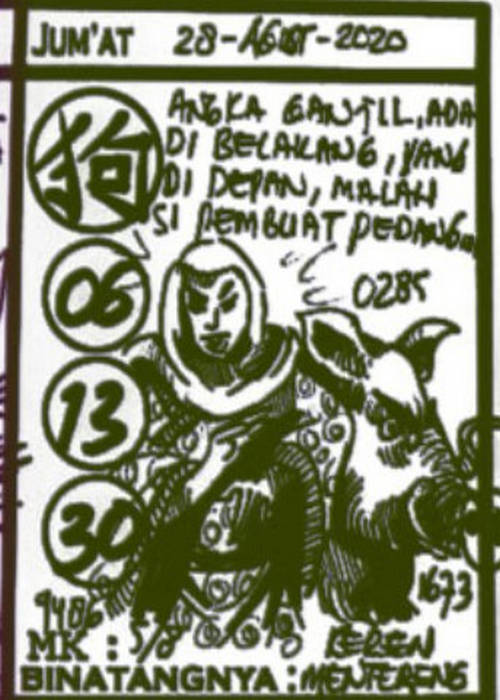 JUM'AT 28-AGUST-2020
ANGKA GANJIL, ADA
DI BELAKANG, YANG
DI DEPAN, MALAH
SI PEMBUAT PEDANG...
狗
06
0285
13
30
1673
9486
MK : 5/8 KEREN
BINATANGNYA : MENTERENG